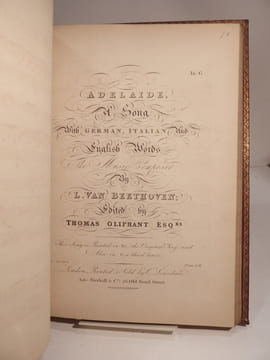 In G.
ADELAIDE,
A Song
With GERMAN, ITALIAN, And
English Words
The Music Composed
By
L. VAN BEETHOVEN;
Edited by
THOMAS OLIPHANT ESQRE
This Song is Printed in the Original Key and
Also a third lower.
London, Printed & Sold by C. Lonsdale,
Late Birchall & Co. 26, Old Bond Street